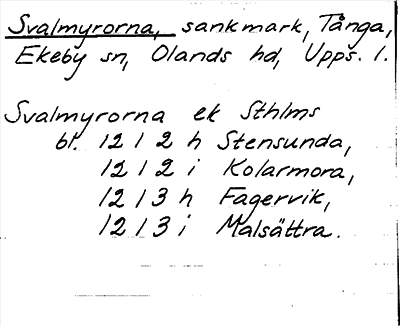 Svalmyrorna, sankmark, Tånga,
Ekeby sn, Olands hd, Upps. l.
Svalmyrorna ek Sthlms
bl. 1212 h Stensunda,
1212 i Kolarmora,
1213 h Fagervik,
1213 i Malsättra.